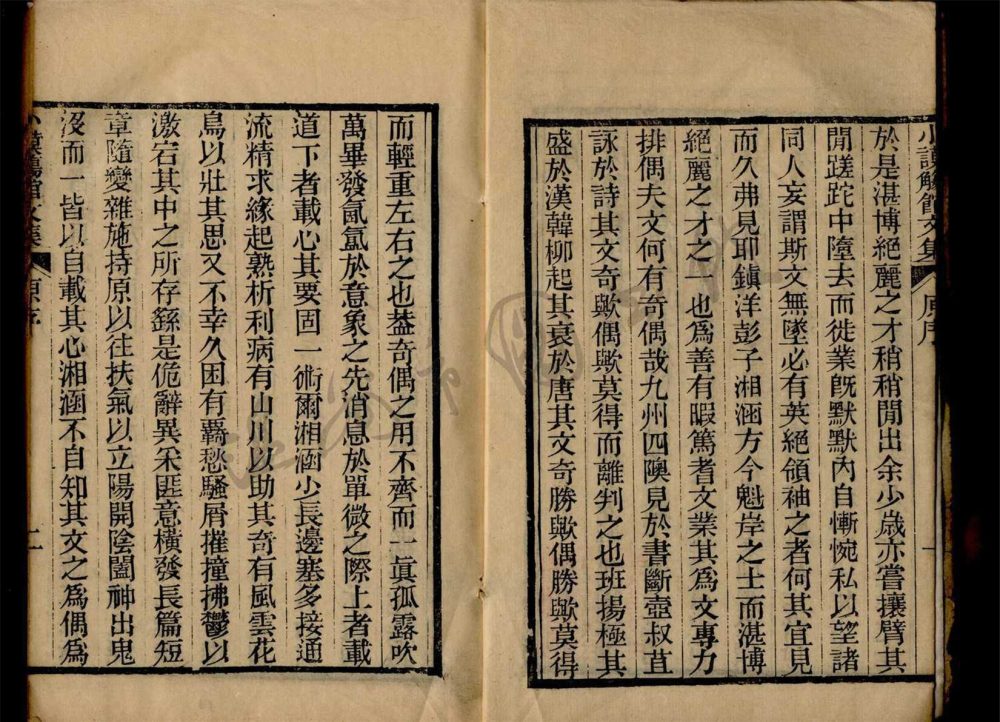 小謨觴館文集 原序 一
於是湛博絕麗之才稍稍閒出余少歲亦嘗攘臂其
閒蹉跎中墮去而徙業旣默默內自慚惋私以望諸
同人妄謂斯文無墜必有英絕領袖之者何其宜見
而久弗見耶鎮洋彭子湘涵方今魁岸之士而湛博
絕麗之才之一也爲善有暇篤耆文業其爲文專力
排偶夫文何有奇偶哉九州四隩見於書斷壺叔苴
詠於詩其文奇歟偶歟莫得而離判之也班揚極其
盛於漢韓柳起其衰於唐其文奇勝歟偶勝歟莫得
而輕重左右之也葢奇偶之用不齊而一眞孤露吹
萬畢發氤氳於意象之先消息於單微之際上者載
道下者載心其要固一術爾湘涵少長邊塞多接通
流精求緣起熟析利病有山川以助其奇有風雲花
鳥以壯其思又不幸久困有羇愁騷屑摧撞拂鬱以
激宕其中之所存繇是佹辭異采匪意橫發長篇短
章隨變雜施持原以往扶氣以立陽開陰闔神出鬼
沒而一皆以自載其心湘涵不自知其文之爲偶爲
小謨觴館文集 原序 二